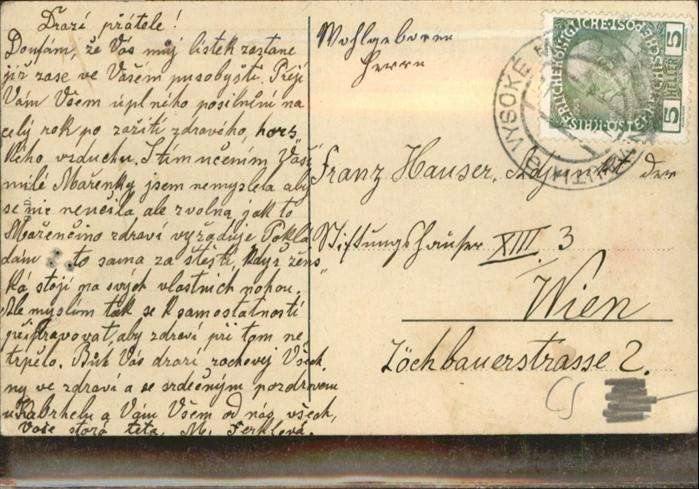 Drazí přátele!
Doufám, že Vás můj lístek zastane
již zase ve Vašem působyšti. Přeji
Vám Všem úplného posilnění na
celý rok po zažití zdravého, hors
kého vzduchu. S tím učením Vaší
milé Mařenky jsem nemyslela aby
se nic neučila, ale zvolna, jak to
Mařenčino zdraví vyžaduje Poklá
dám to sama za štěstí, když žens
ká stojí na svých vlastních nohou.
Ale myslím tak se k samostatnosti
připravovat, aby zdraví při tom ne
trpělo. Bůh Vás drazí zachovej Všech
ny ve zdraví a se srdečným pozdravem
a Vám Všem od nás všech,
Vaše stará teta, M. Ferklová.
Wohlgeboren
Herrn
Franz Hauser, Adjunkt der
Stiftungshäuser XIII. 3
Wien
Zöchbauerstrasse 2.
5 5
HELLER
VYSOKÉ